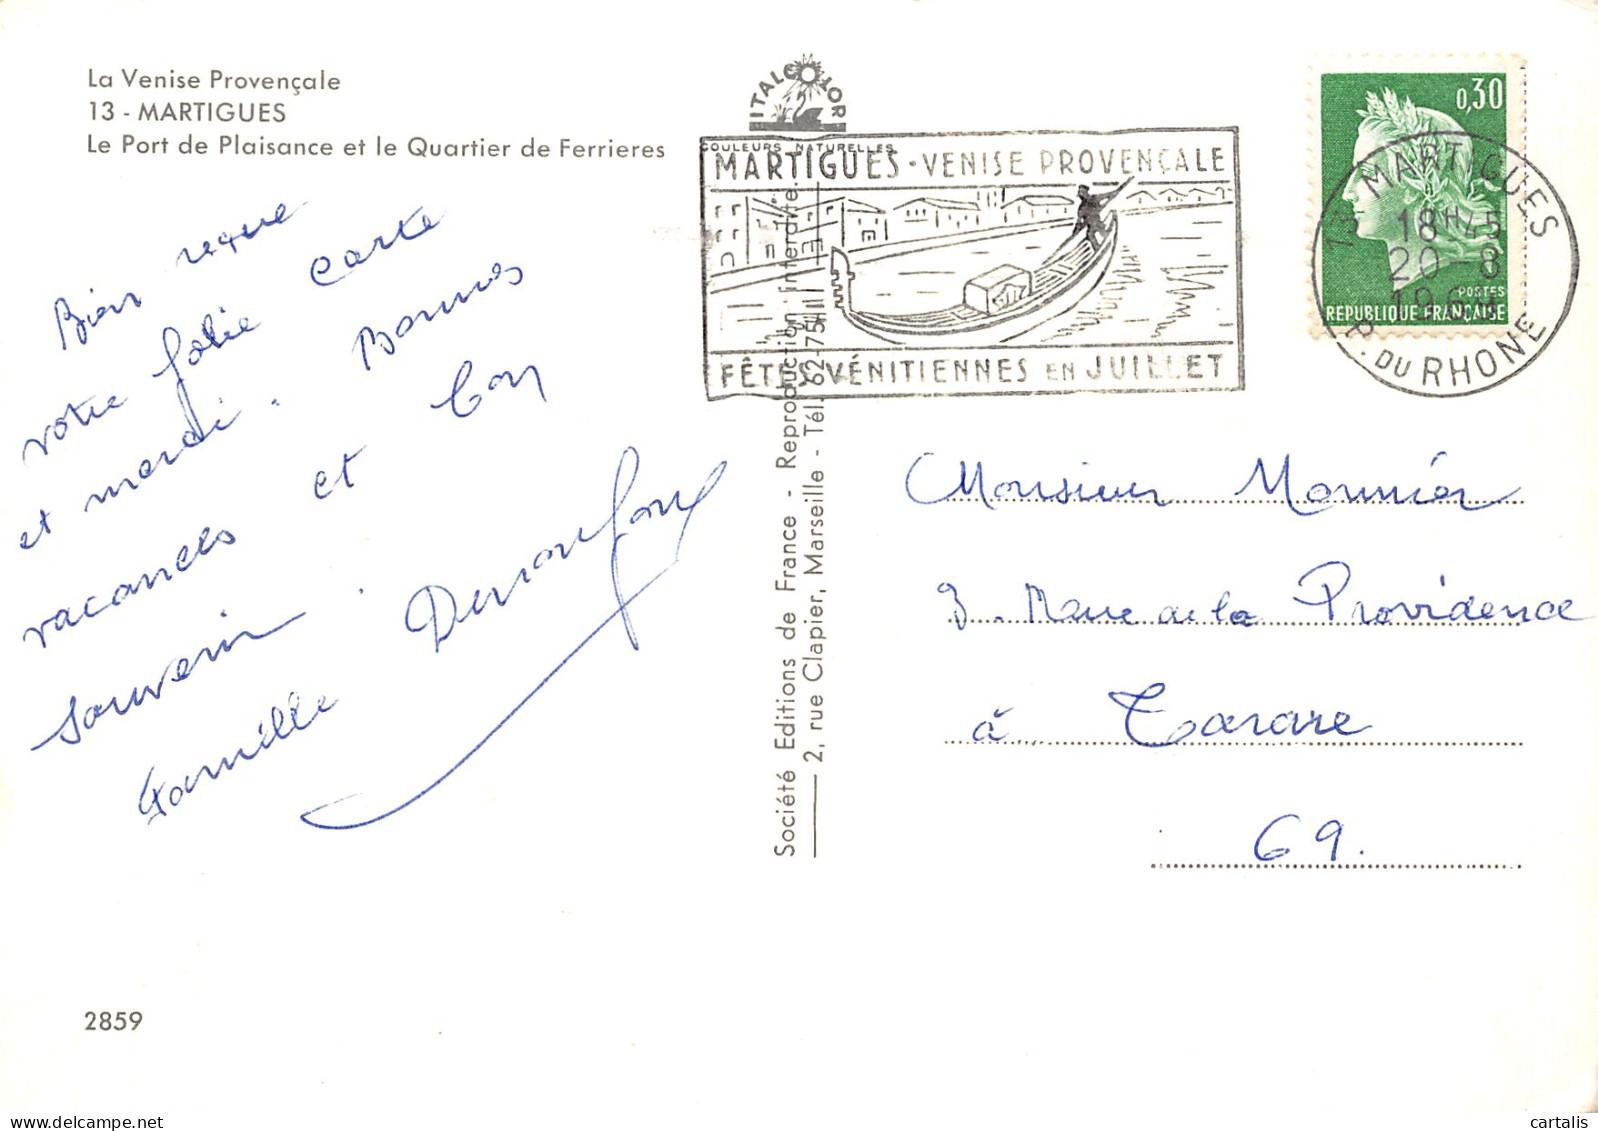 La Venise Provençale
13 - MARTIGUES
Le Port de Plaisance et le Quartier de Ferrieres
ITALCOLOR
COULEURS NATURELLES
MARTIGUES • VENISE PROVENÇALE
FÊTES VÉNITIENNES EN JUILLET
0,30
POSTES
REPUBLIQUE FRANÇAISE
13 MARTIGUES
18H45
20 - 8
1969
B. DU RHONE
Bien reçue
votre jolie carte
et merci. Bonnes
vacances et bon
souvenir.
Famille
Société Editions de France - Reproduction interdite.
2, rue Clapier, Marseille - Tél. 62-75
Monsieur Mounier
3. de la Providence
à Tarare
69.
2859
cartalis